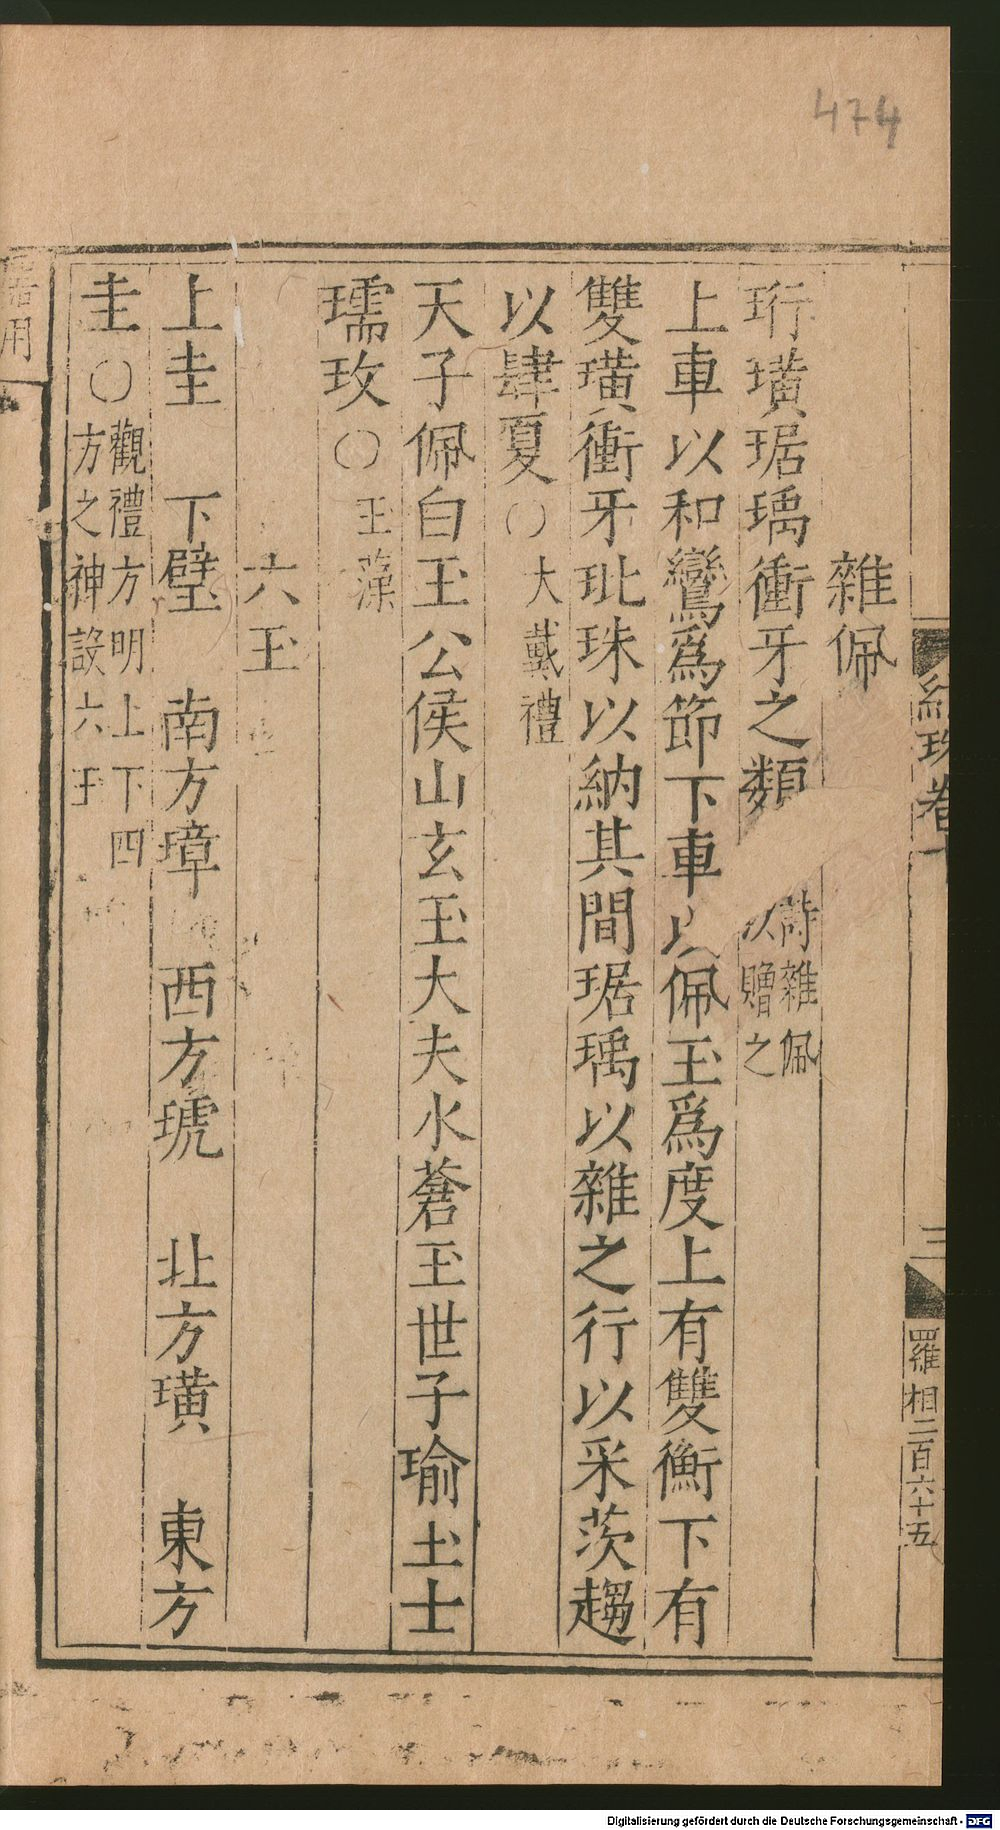 474
雜佩
珩璜琚瑀衝牙之類
詩雜佩
以贈之
上車以和鸞爲節下車以佩玉爲度上有雙衡下有
雙璜衝牙玭珠以納其間琚瑀以雜之行以采茨趨
以肆夏○大戴禮
天子佩白玉公侯山玄玉大夫水蒼玉世子瑜玉士
瓀玫○玉藻
六玉
上圭 下璧 南方璋 西方琥 北方璜 東方
圭○
觀禮方明上下四
方之神設六玉
三
羅相二百六十五
用
Digitalisierung gefördert durch die Deutsche Forschungsgemeinschaft - DFG